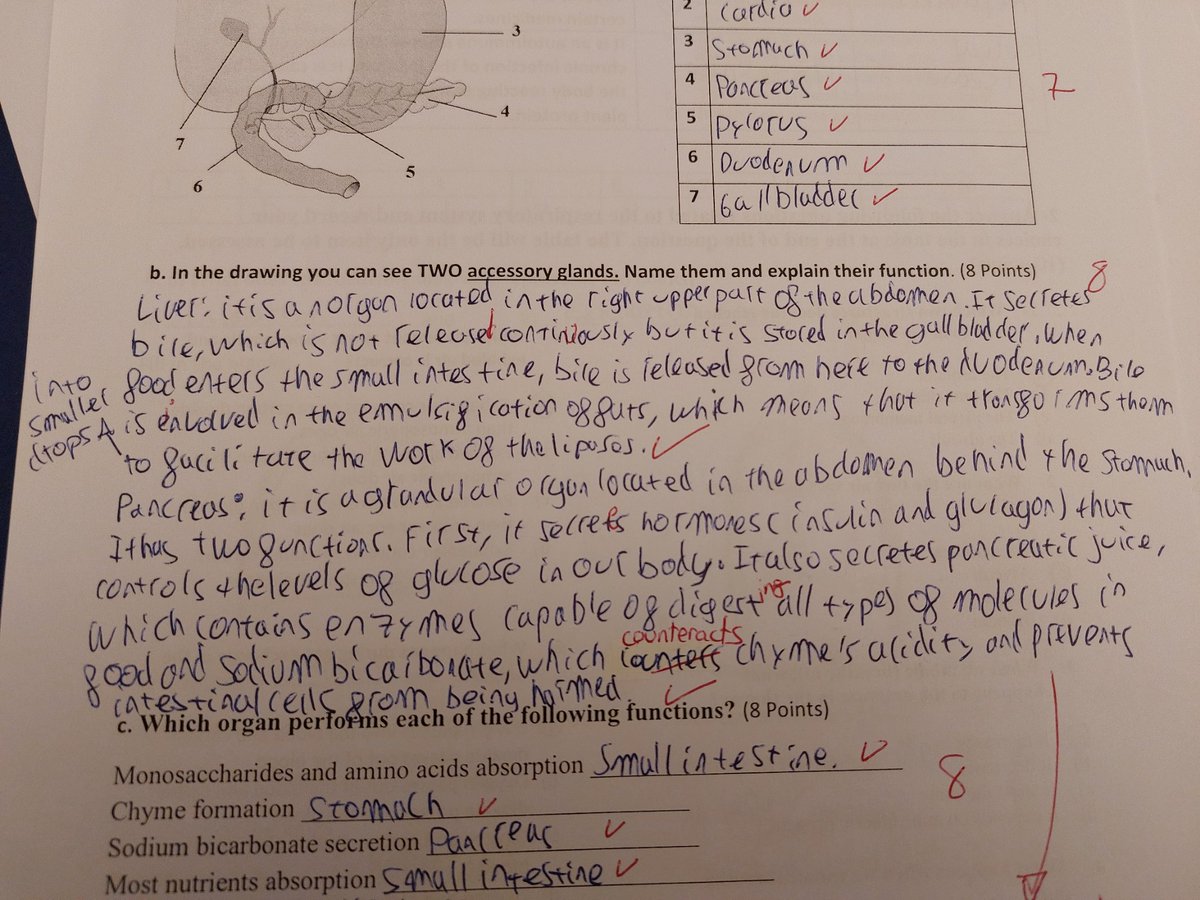 2 Cardia
3
3 Stomach
4 Pancreas
7
4
5 Pylorus
7
5
6 Duodenum
6
7 Gallbladder
b. In the drawing you can see TWO accessory glands. Name them and explain their function. (8 Points)
8
Liver: it is an organ located in the right upper part of the abdomen. It secretes
bile, which is not released continiously but it is stored in the gall bladder, when
food enters the small intestine, bile is released from here to the duodenum. Bile
into smaller drops
is involved in the emulsification of fats, which means that it transforms them
to facilitate the work of the lipases.
Pancreas: it is a glandular organ located in the abdomen behind the stomach.
It has two functions. First, it secretes hormones (insulin and glucagon) that
controls the levels of glucose in our body. It also secretes pancreatic juice,
which contains enzymes capable of digesting all types of molecules in
counteracts
food and sodium bicarbonate, which counters chyme's acidity and prevents
intestinal cells from being harmed.
c. Which organ performs each of the following functions? (8 Points)
Monosaccharides and amino acids absorption Small intestine.
8
Chyme formation Stomach
Sodium bicarbonate secretion Pancreas
Most nutrients absorption Small intestine